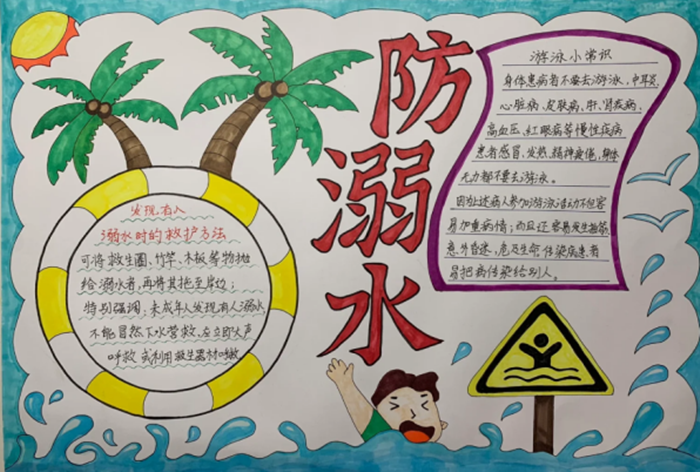 防溺水
游泳小常识
身体患病者不要去游泳，中耳炎
心脏病、皮肤病、肝、肾疾病、
高血压、红眼病等慢性疾病
患者感冒、发热、精神疲倦、身体
无力都不要去游泳。
因为上述病人参加游泳活动不但容
易加重病情；而且还容易发生抽筋、
意外昏迷、危及生命。传染病患者
易把病传染给别人。
发现有人
溺水时的救护方法
可将救生圈、竹竿、木板等物抛
给溺水者，再将其拖至岸边；
特别强调：未成年人发现有人溺水
不能冒然下水营救、应立即大声
呼救，或利用救生器材呼救